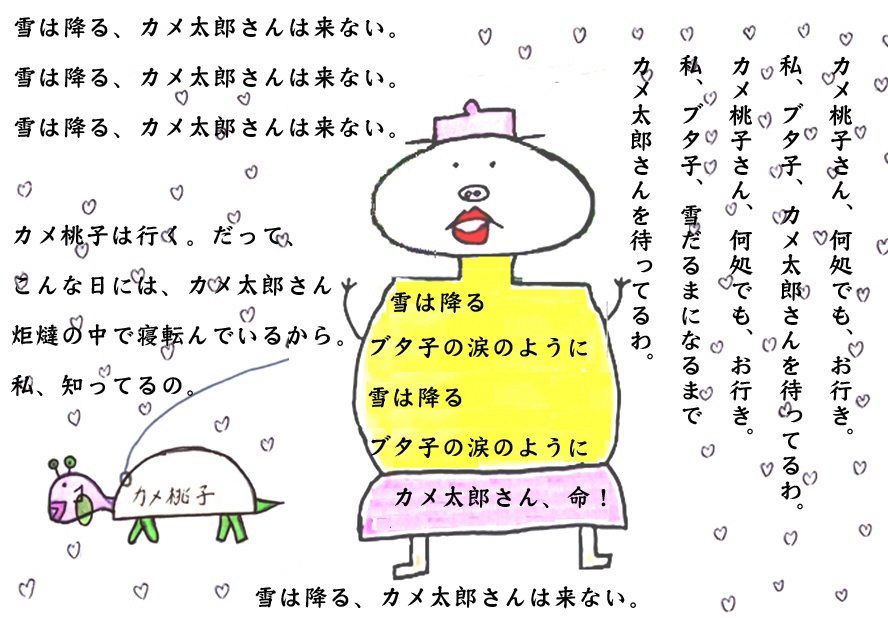 雪は降る、カメ太郎さんは来ない。
雪は降る、カメ太郎さんは来ない。
雪は降る、カメ太郎さんは来ない。
カメ桃子は行く。だって、
こんな日には、カメ太郎さん
炬燵の中で寝転んでいるから。
私、知ってるの。
カメ桃子
雪は降る
ブタ子の涙のように
雪は降る
ブタ子の涙のように
カメ太郎さん、命！
カメ桃子さん、何処でも、お行き。
私、ブタ子、カメ太郎さんを待ってるわ。
カメ桃子さん、何処でも、お行き。
私、ブタ子、雪だるまになるまで
カメ太郎さんを待ってるわ。
雪は降る、カメ太郎さんは来ない。